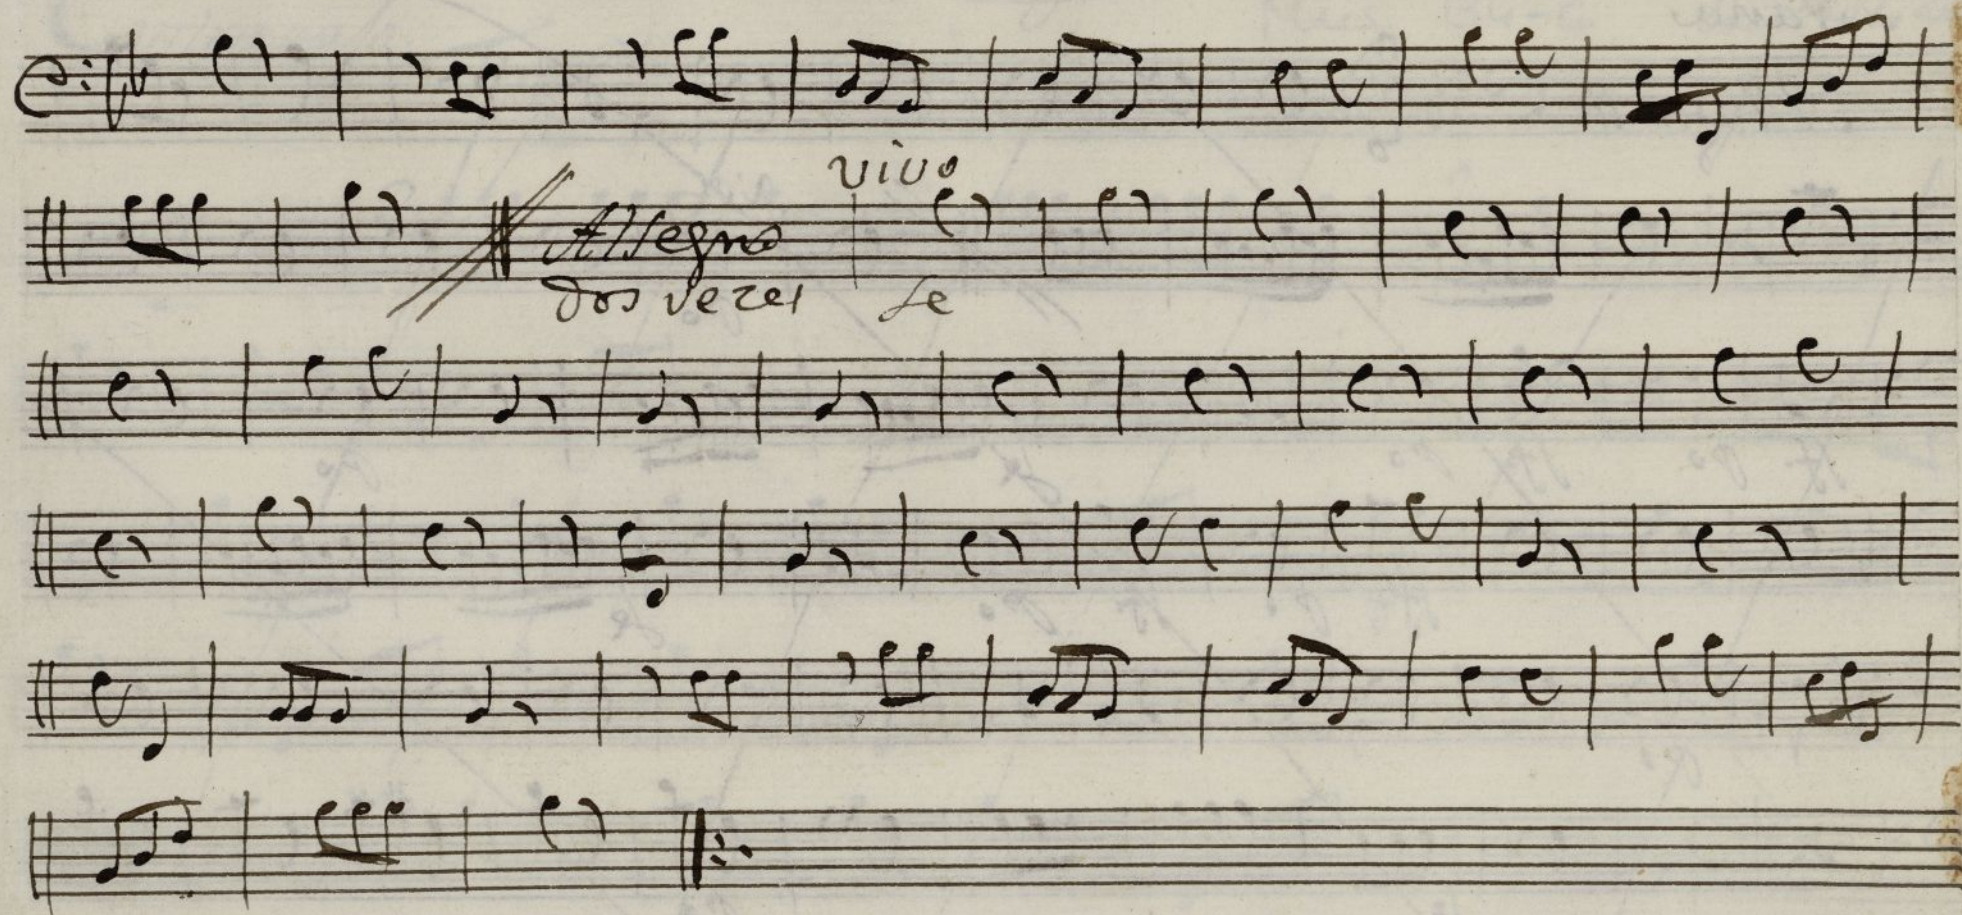 vivo
Allegro
dos vezes se